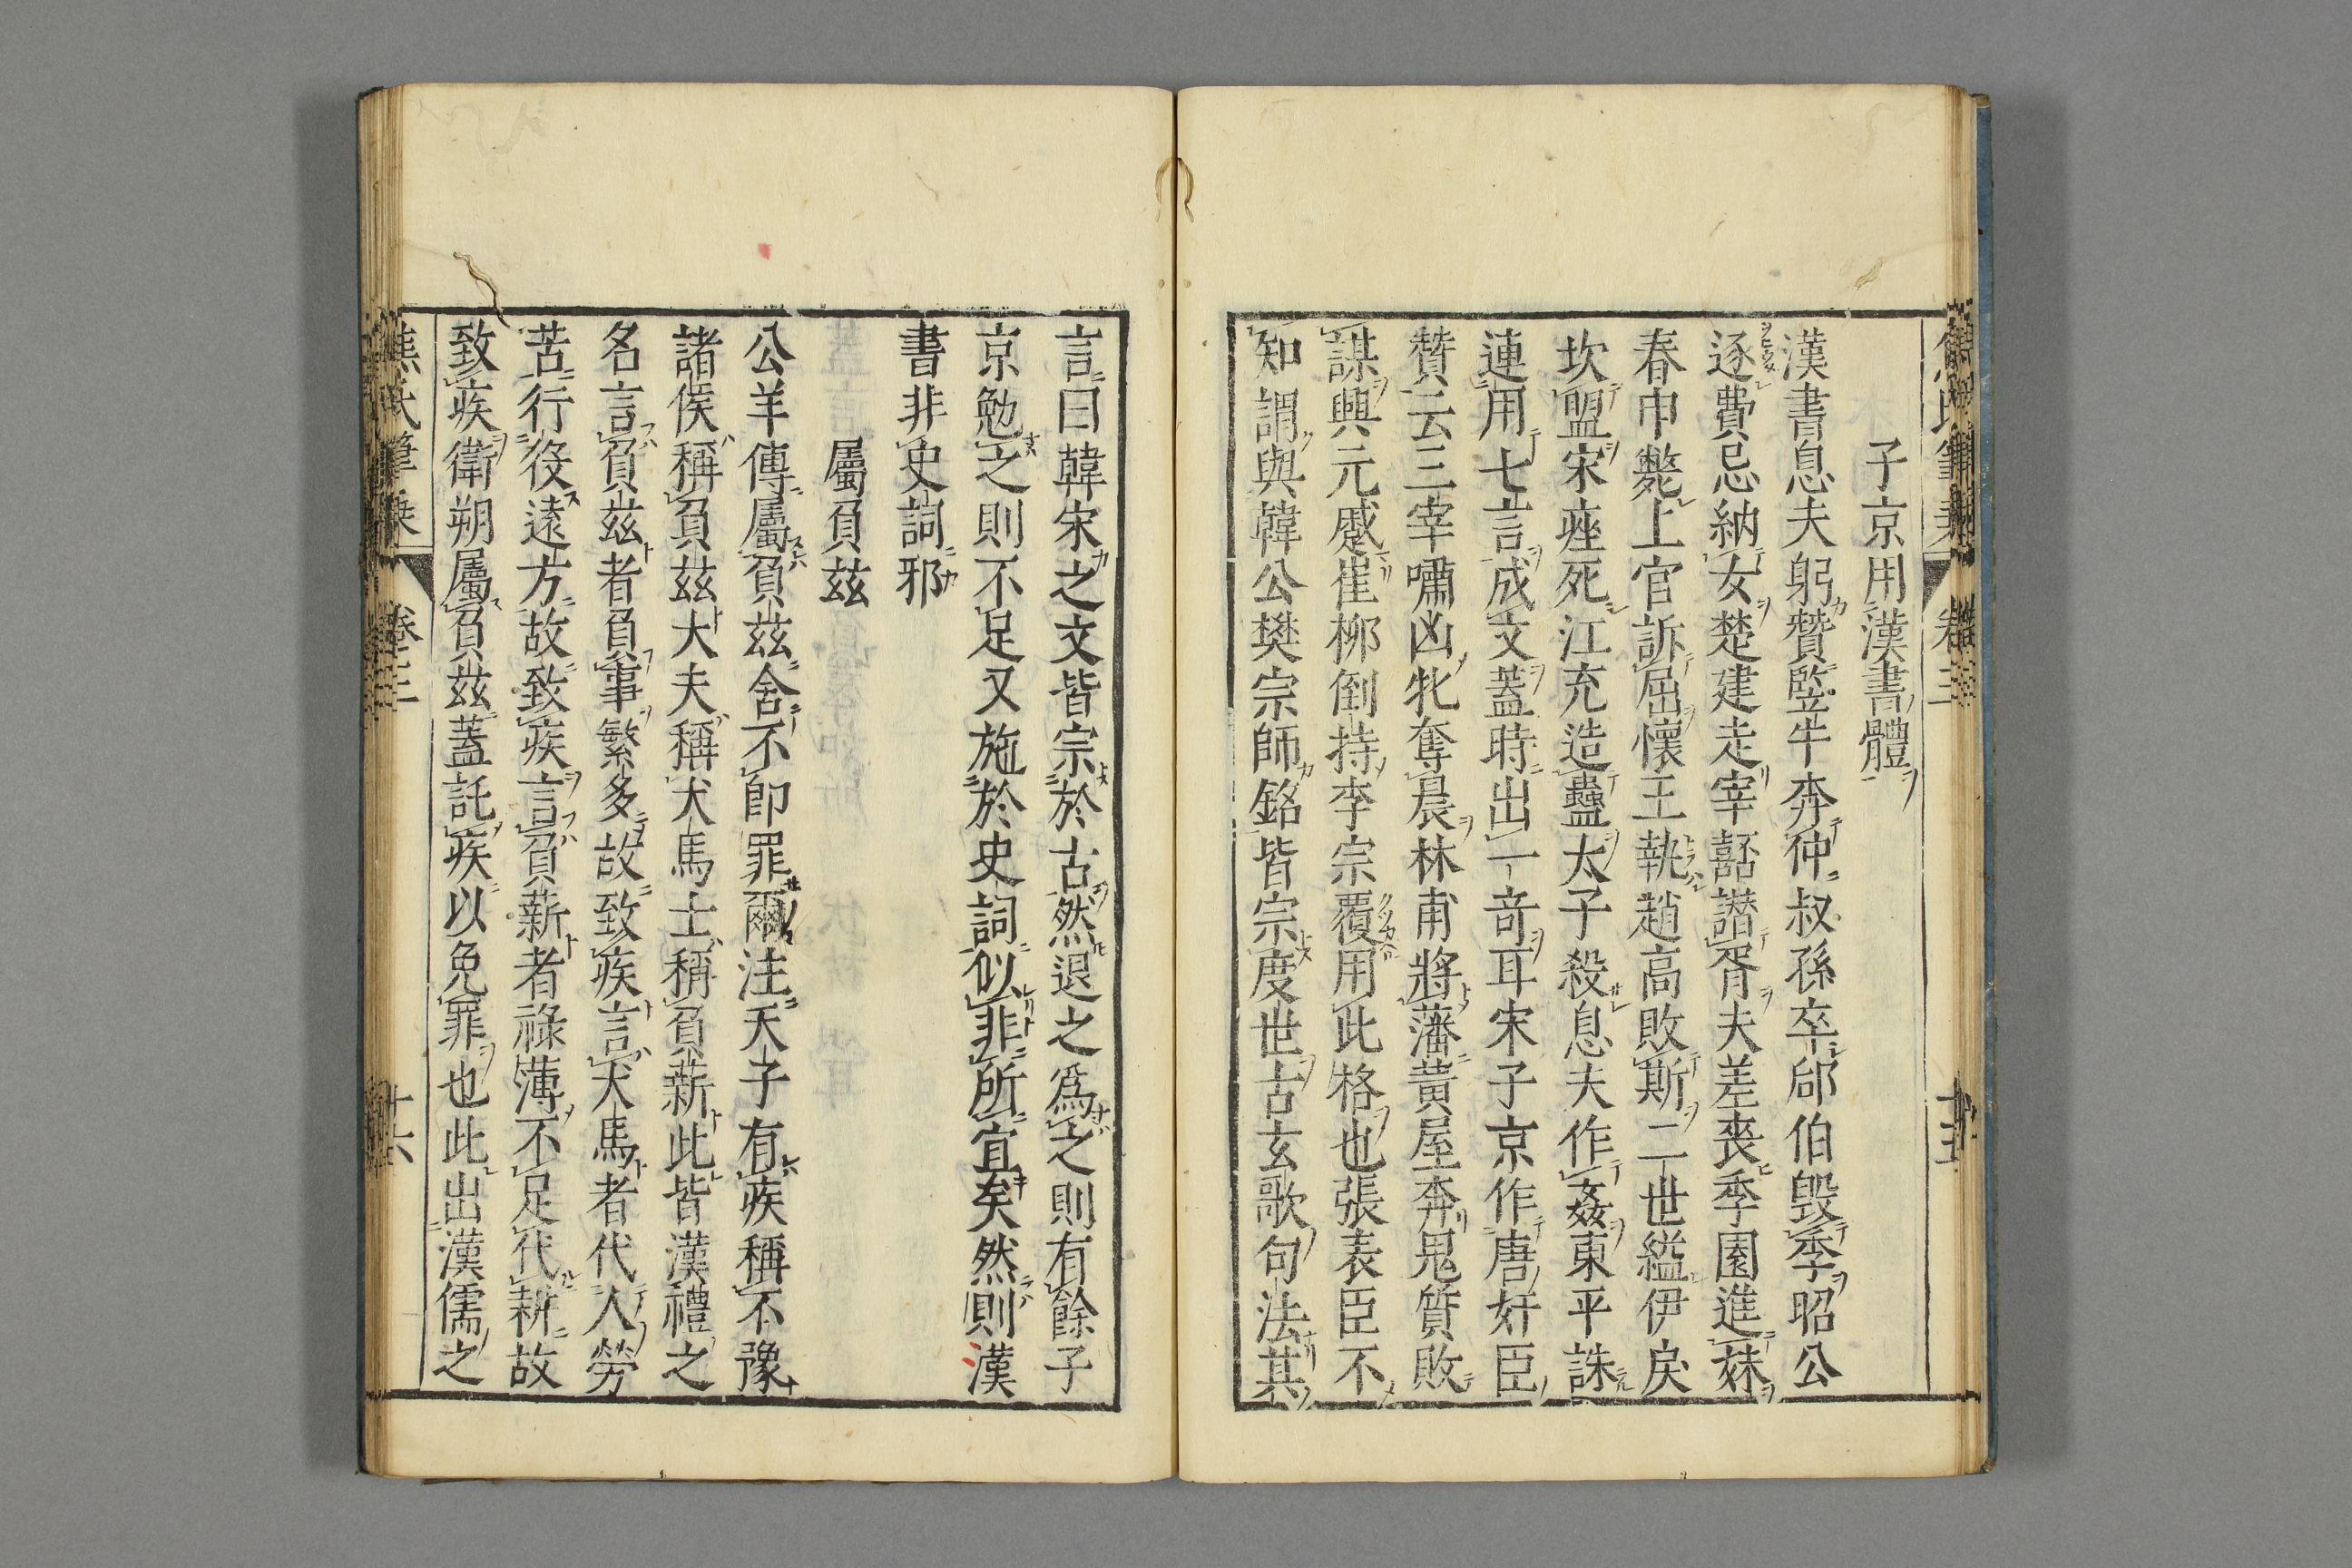 子京用漢書體
漢書息夫躬贊豎牛奔仲叔孫卒郈伯毀季昭公
逐費忌納女楚建走宰嚭譖胥夫差喪李園進妹
春申斃上官訴屈懷王執趙高敗斯二世縊伊戾
坎盟宋痤死江充造蠱太子殺息夫作姦東平誅
連用七言成文蓋時出一奇耳宋子京作唐奸臣
贊云三宰嘯凶牝奪晨林甫將藩黃屋奔鬼質敗
謀興元蹙崔柳倒持李宗覆用此格也張表臣不
知謂與韓公樊宗師銘皆宗度世古玄歌句法其
言曰韓宋之文皆宗於古然退之爲之則有餘子
京勉之則不足又施於史詞似非所宜矣然則漢
書非史詞邪
屬負茲
公羊傳屬負茲舍不卽罪爾注天子有疾稱不豫
諸侯稱負茲大夫稱犬馬士稱負薪此皆漢禮之
名言負茲者負事繁多故致疾言犬馬者代人勞
苦行役遠方故致疾言負薪者祿薄不足代耕故
致疾衛朔屬負茲蓋託疾以免罪也此出漢儒之
焦氏筆乘 卷三 十六